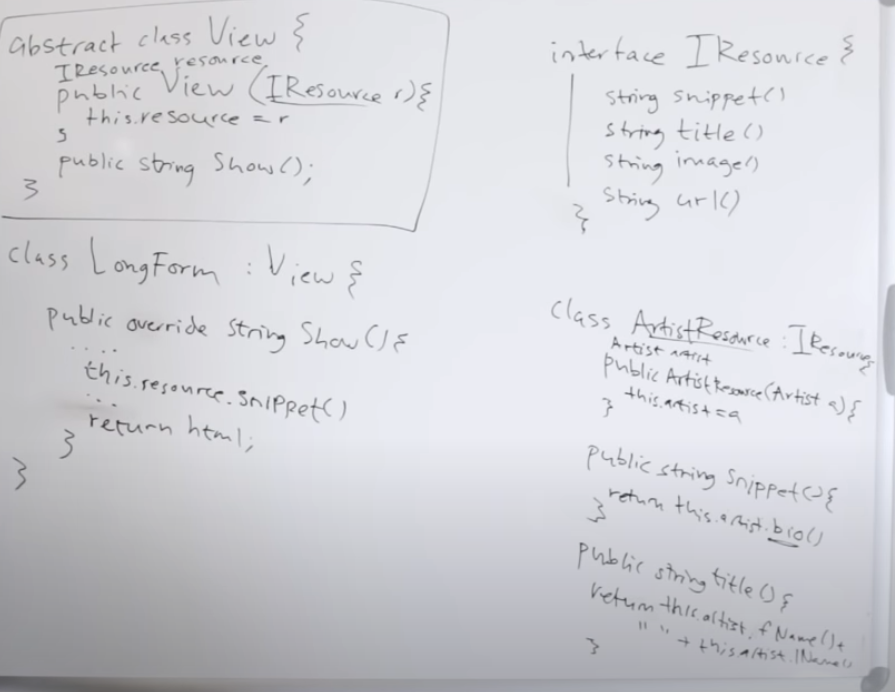 abstract class View {
IResource resource
public View (IResource r) {
this.resource = r
}
public string Show();
}
class LongForm : View {
public override string Show() {
....
this.resource.snippet()
...
return html;
}
}
interface IResource {
string snippet()
string title()
string image()
string url()
}
class ArtistResource : IResource {
Artist artist
public ArtistResource(Artist a) {
this.artist = a
}
public string Snippet() {
return this.artist.bio()
}
public string title() {
return this.artist.fName() +
" " + this.artist.lName()
}